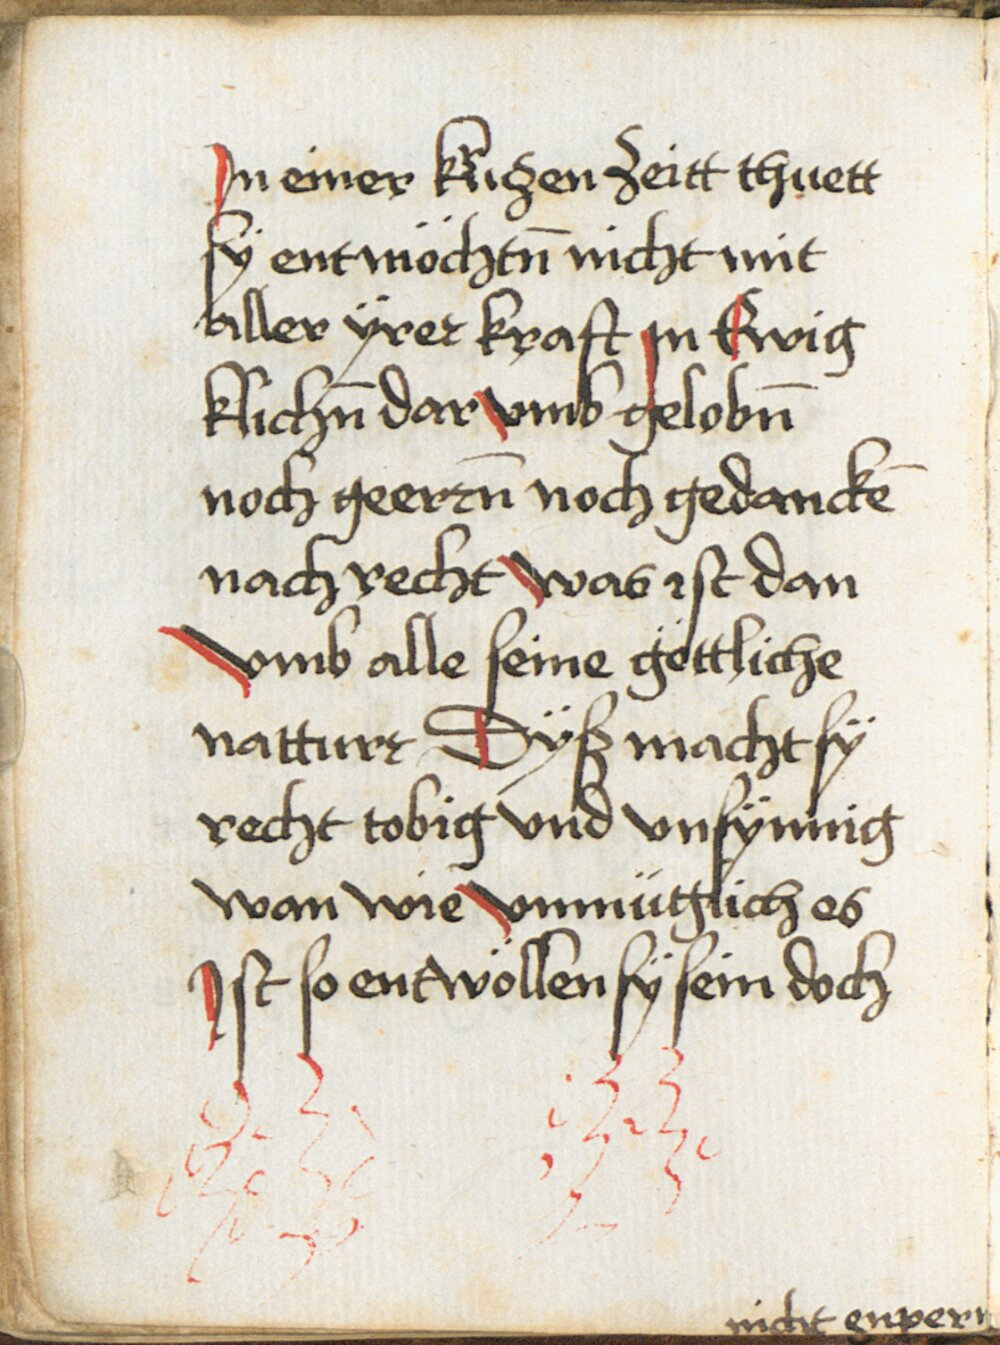 In einer kurtzen zeitt thuett
sÿ entmöchtn̄ nicht mit
aller ÿrer kraft In Ewig
klichn̄ dar vmb gelobn̄
noch geern̄ noch gedanckē
nach recht was ist dan
vmb alle seine göttliche
natturr Dÿß macht sÿ
recht tobig vnd vnsÿnnig
wan wie vnmüglich es
Ist so entwöllen sÿ sein doch
nicht enpern